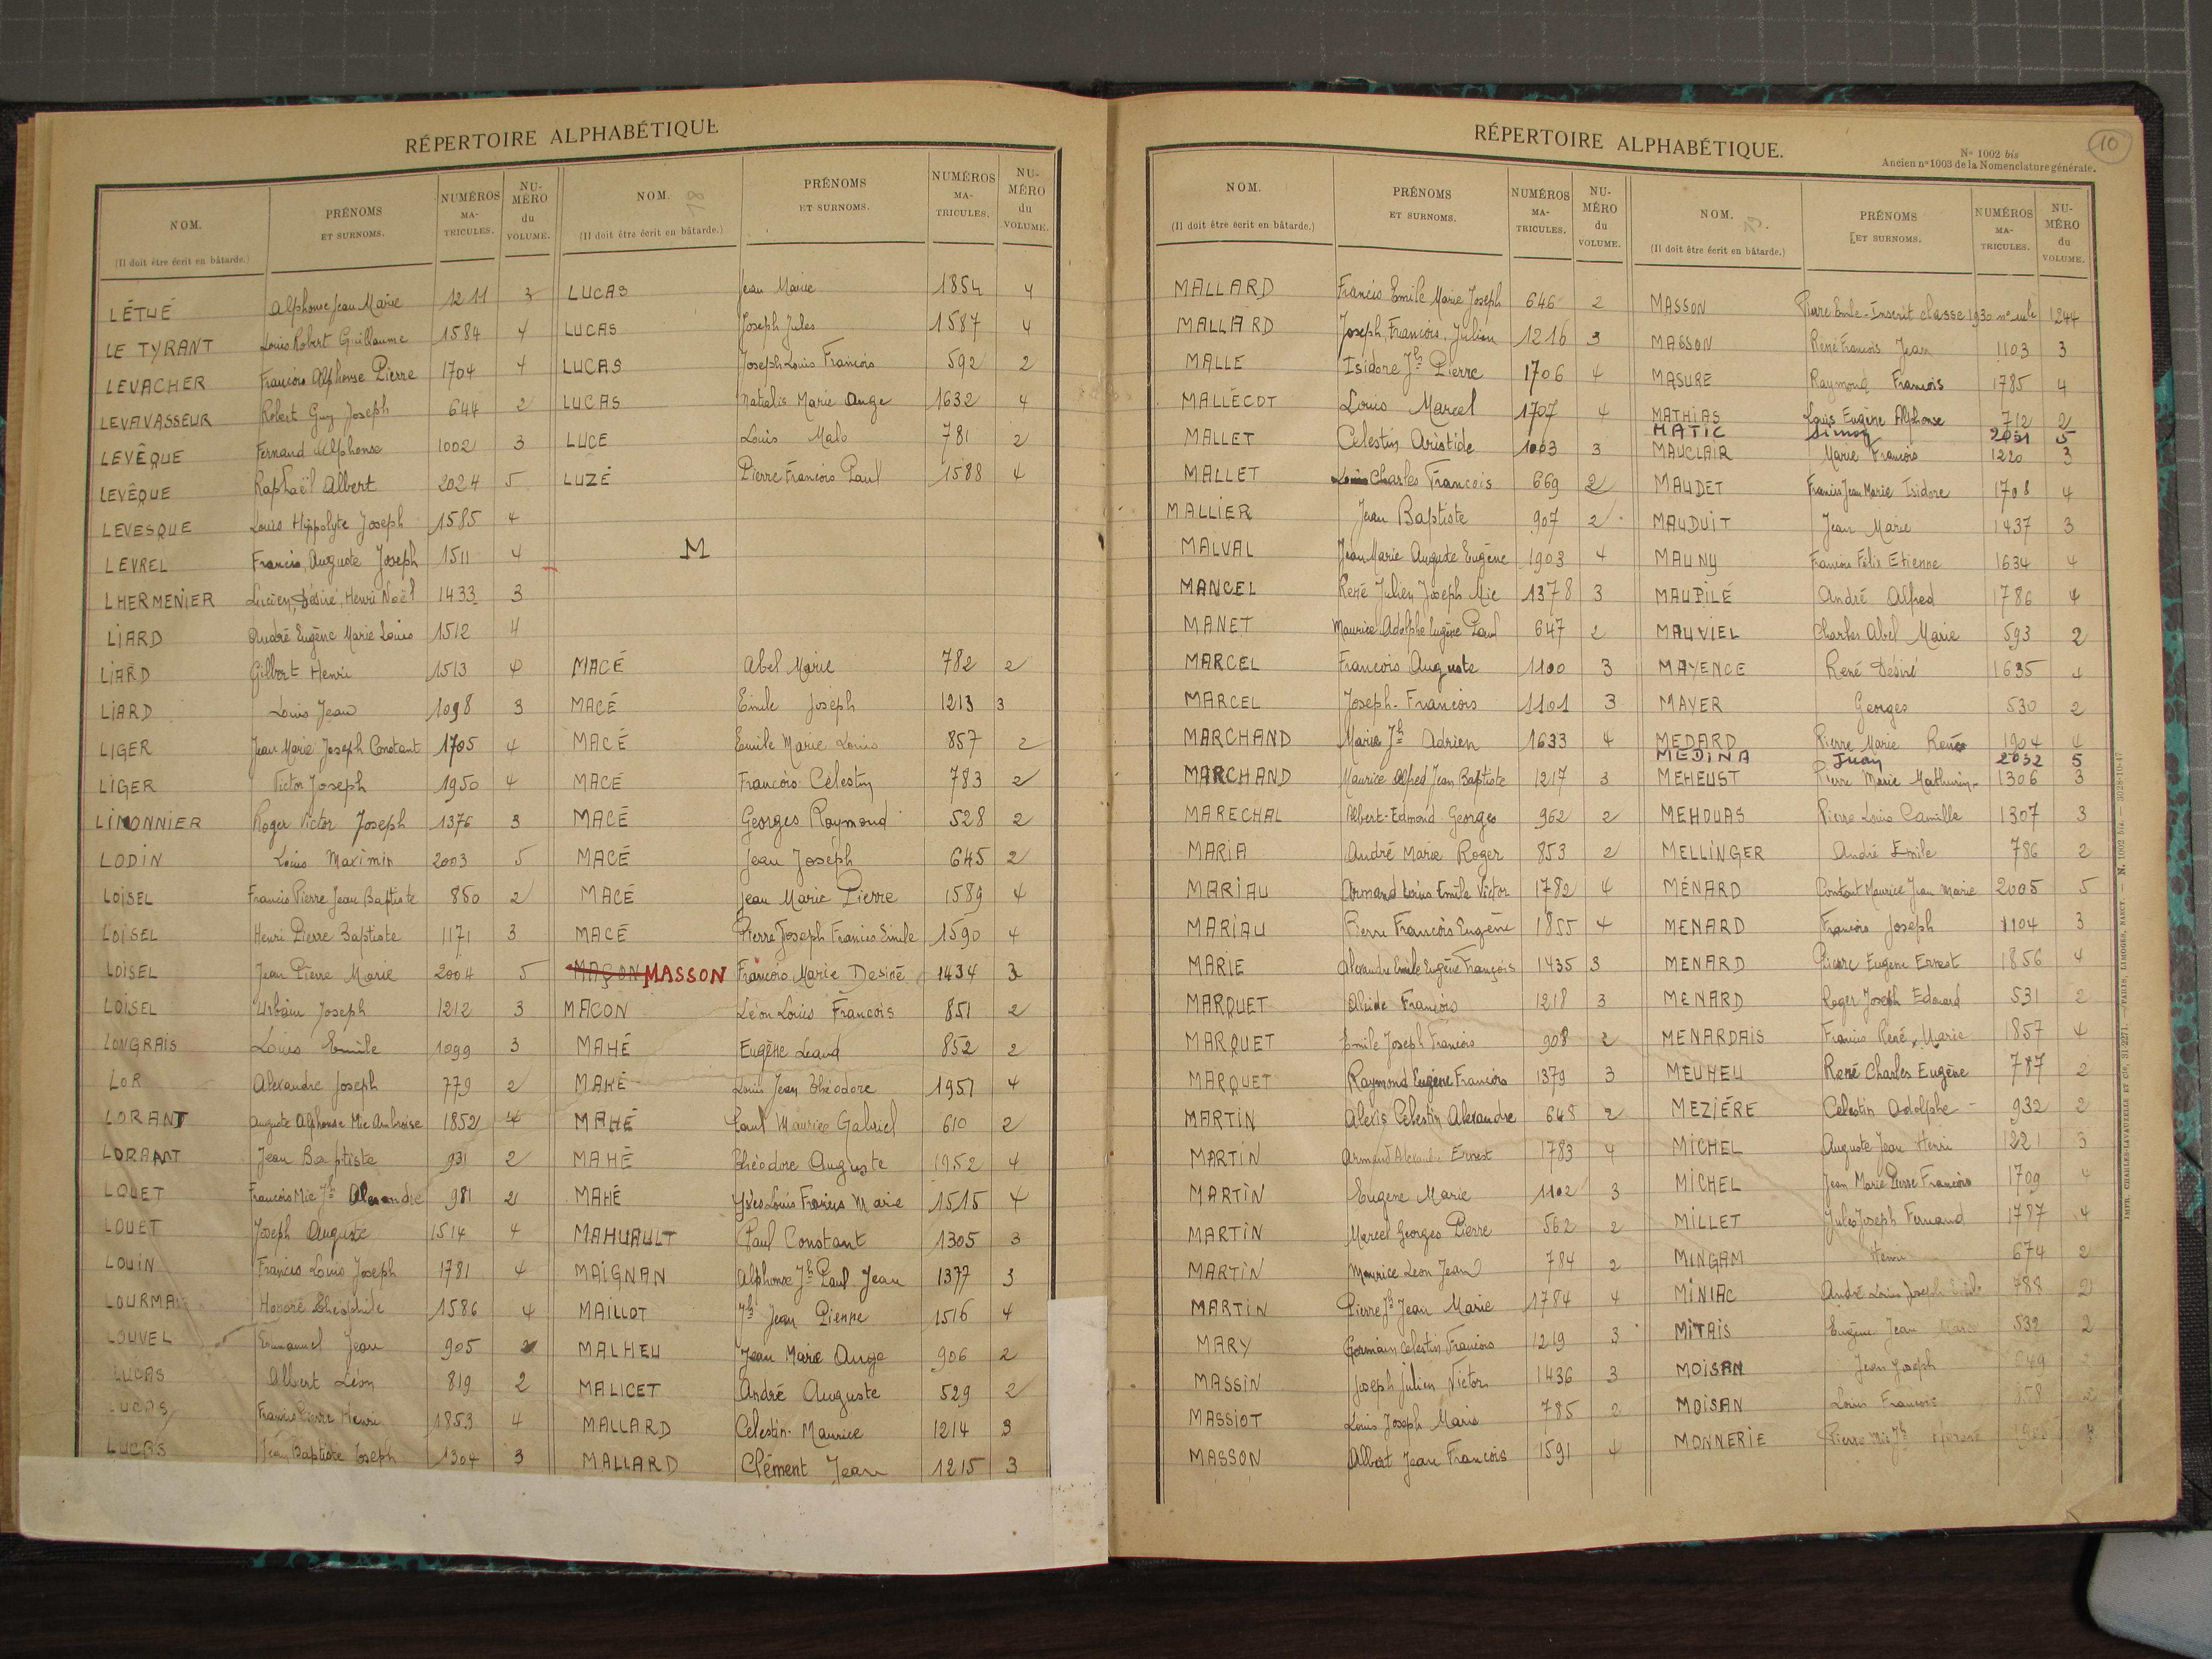 RÉPERTOIRE ALPHABÉTIQUE
NOM. (Il doit être écrit en bâtarde.) PRÉNOMS ET SURNOMS. NUMÉROS MA-TRICULES. NU-MÉRO du VOLUME.
LÉTUÉ Alphonse Jean Marie 1211 3
LE TYRANT Louis Robert Guillaume 1584 4
LEVACHER François Alphonse Pierre 1704 4
LEVAVASSEUR Robert Guy Joseph 644 2
LEVÊQUE Fernand Alphonse 1002 3
LEVÊQUE Raphaël Albert 2024 5
LEVESQUE Louis Hippolyte Joseph 1585 4
LEVREL Francis, Auguste Joseph 1511 4
LHERMENIER Lucien, Désiré, Henri Noël 1433 3
LIARD André Eugène Marie Louis 1512 4
LIARD Gilbert Henri 1513 4
LIARD Louis Jean 1098 3
LIGER Jean Marie Joseph Constant 1705 4
LIGER Victor Joseph 1950 4
LIMONNIER Roger Victor Joseph 1376 3
LODIN Louis Maximin 2003 5
LOISEL Francis Pierre Jean Baptiste 850 2
LOISEL Henri Pierre Baptiste 1171 3
LOISEL Jean Pierre Marie 2004 5
LOISEL Urbain Joseph 1212 3
LONGRAIS Louis Emile 1099 3
LOR Alexandre Joseph 779 2
LORANT Auguste Alphonse Mie Ambroise 1852 4
LORANT Jean Baptiste 931 2
LOUET François Mie Jh Alexandre 981 2
LOUET Joseph Auguste 1514 4
LOUIN Francis Louis Joseph 1781 4
LOURMA Honoré Théophile 1586 4
LOUVEL Emmanuel Jean 905 2
LUCAS Albert Léon 819 2
LUCAS Francis Pierre Henri 1853 4
LUCAS Jean Baptiste Joseph 1304 3
NOM. 18 (Il doit être écrit en bâtarde.) PRÉNOMS ET SURNOMS. NUMÉROS MA-TRICULES. NU-MÉRO du VOLUME.
LUCAS Jean Marie 1854 4
LUCAS Joseph Jules 1587 4
LUCAS Joseph Louis François 592 2
LUCAS Natialis Marie Ange 1632 4
LUCE Louis Malo 781 2
LUZÉ Pierre François Paul 1588 4
M
MACÉ Abel Marie 782 2
MACÉ Emile Joseph 1213 3
MACÉ Emile Marie Louis 857 2
MACÉ François Célestin 783 2
MACÉ Georges Raymond 528 2
MACÉ Jean Joseph 645 2
MACÉ Jean Marie Pierre 1589 4
MACÉ Pierre Joseph Francis Emile 1590 4
MAÇON MASSON François Marie Desiré 1434 3
MACON Léon Louis François 851 2
MAHÉ Eugène 852 2
MAHÉ Louis Jean Théodore 1951 4
MAHÉ Paul Maurice Gabriel 610 2
MAHÉ Théodore Auguste 1952 4
MAHÉ Yves Louis Francis Marie 1515 4
MAHUAULT Paul Constant 1305 3
MAIGNAN Alphonse Jh Paul Jean 1377 3
MAILLOT Jh Jean Pierre 1516 4
MALHEU Jean Marie Ange 906 2
MALICET André Auguste 529 2
MALLARD Celestin-Maurice 1214 3
MALLARD Clément Jean 1215 3
RÉPERTOIRE ALPHABÉTIQUE.
N° 1002 bis
Ancien n° 1003 de la Nomenclature générale.
10
NOM. (Il doit être écrit en bâtarde.) PRÉNOMS ET SURNOMS. NUMÉROS MA-TRICULES. NU-MÉRO du VOLUME.
MALLARD Francis Emile Marie Joseph 646 2
MALLARD Joseph, François, Julien 1216 3
MALLE Isidore Jh Pierre 1706 4
MALLÉCOT Louis Marcel 1707 4
MALLET Celestin Aristide 1003 3
MALLET Louis Charles François 669 2
MALLIER Jean Baptiste 907 2
MALVAL Jean Marie Auguste Eugène 1903 4
MANCEL René Julien Joseph Mie 1378 3
MANET Maurice Adolphe Eugène Paul 647 2
MARCEL François Auguste 1100 3
MARCEL Joseph-François 1101 3
MARCHAND Marie Jh Adrien 1633 4
MARCHAND Maurice Alfred Jean Baptiste 1217 3
MARECHAL Albert-Edmond Georges 962 2
MARIA André Marie Roger 853 2
MARIAU Armand Louis Emile Victor 1782 4
MARIAU Pierre François Eugène 1855 4
MARIE Alexandre Emile Eugène François 1435 3
MARQUET Alcide François 1218 3
MARQUET Emile Joseph François 908 2
MARQUET Raymond Eugène François 1379 3
MARTIN Alexis Célestin Alexandre 648 2
MARTIN Armand Alexandre Ernest 1783 4
MARTIN Eugene Marie 1102 3
MARTIN Marcel Georges Pierre 562 2
MARTIN Maurice Leon Jean 784 2
MARTIN Pierre Jh Jean Marie 1784 4
MARY Germain Celestin François 1219 3
MASSIN Joseph Julien Victor 1436 3
MASSIOT Louis Joseph Marie 785 2
MASSON Albert Jean François 1591 4
NOM. 19. (Il doit être écrit en bâtarde.) PRÉNOMS ET SURNOMS. NUMÉROS MA-TRICULES. NU-MÉRO du VOLUME.
MASSON Pierre Emile-Inscrit classe 1930 n° mle 1244
MASSON René François Jean 1103 3
MASURE Raymond François 1785 4
MATHIAS Louis Eugène Alphonse 712 2
MATIC Simon 2031 5
MAUCLAIR Marie François 1220 3
MAUDET Francis Jean Marie Isidore 1708 4
MAUDUIT Jean Marie 1437 3
MAUNY François Félix Etienne 1634 4
MAUPILÉ André Alfred 1786 4
MAUVIEL Charles Abel Marie 593 2
MAYENCE René Désiré 1635 4
MAYER Georges 530 2
MEDARD Pierre Marie René 1904 4
MEDINA Juan 2032 5
MEHEUST Pierre Marie Mathurin 1306 3
MEHOUAS Pierre Louis Camille 1307 3
MELLINGER André Emile 786 2
MÉNARD Constant Maurice Jean Marie 2005 5
MENARD François Joseph 1104 3
MENARD Pierre Eugene Ernest 1856 4
MENARD Roger Joseph Edouard 531 2
MENARDAIS Francis René, Marie 1857 4
MEUHEU René Charles Eugène 787 2
MEZIÉRE Celestin Adolphe 932 2
MICHEL Auguste Jean Henri 1221 3
MICHEL Jean Marie Pierre François 1709 4
MILLET Jules Joseph Fernand 1787 4
MINGAM Henri 674 2
MINIAC André Louis Joseph 788 2
MITAIS Eugène Jean Marie 532 2
MOISAN Jean Joseph 649
MOISAN Louis François 858 2
MONNERIE Pierre Mie Jh
IMPR. CHARLES-LAVAUZELLE ET Cie, 31-2271. — PARIS, LIMOGES, NANCY. — N. 1002 bis. — 5028-10-47